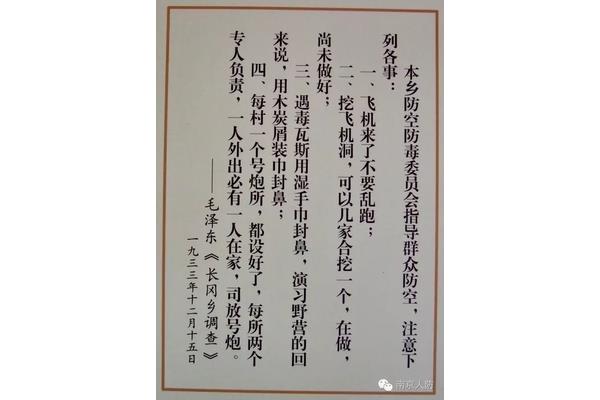 本乡防空防毒委员会指导群众防空，注意下
列各事：
一、飞机来了不要乱跑；
二、挖飞机洞，可以几家合挖一个，在做，
尚未做好；
三、遇毒瓦斯用湿手巾封鼻，演习野营的回
来说，用木炭屑装巾封鼻；
四、每村一个号炮所，都设好了，每所两个
专人负责，一人外出必有一人在家，司放号炮。
——毛泽东《长冈乡调查》
一九三三年十二月十五日
南京人防